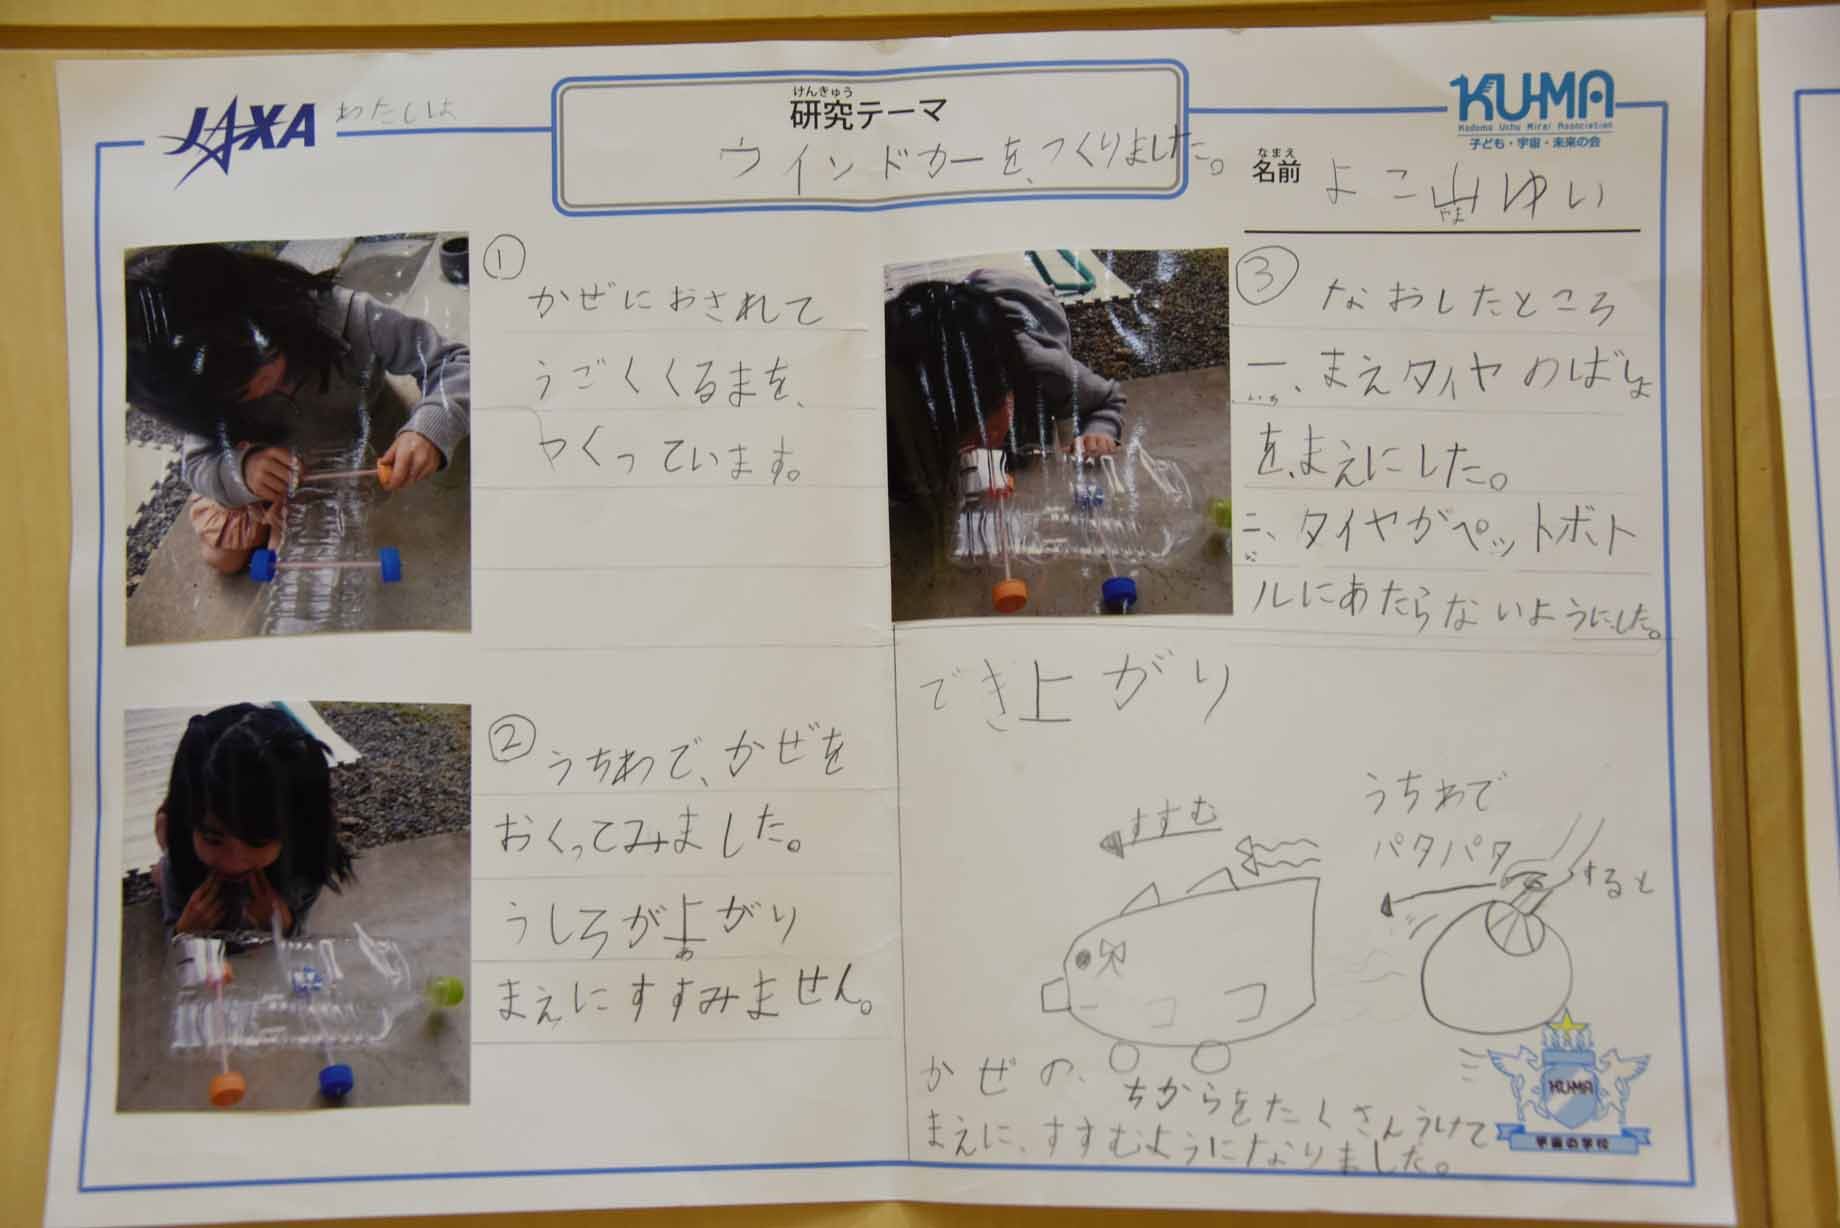 JAXA
わたしは
けんきゅう
研究テーマ
ウインドカーを、つくりました。
KU-MA
Kodomo Uchu Mirai Association
子ども・宇宙・未来の会
なまえ
名前
よこ山ゆい
やま
①
かぜにおされて
うごくくるまを、
つくっています。
②
うちわで、かぜを
おくってみました。
うしろが上がり
あ
まえにすすみません。
③
なおしたところ
一、まえタイヤのばしょ
いち
を、まえにした。
二、タイヤがペットボト
に
ルにあたらないようにした。
でき上がり
すすむ
うちわで
パタパタ
すると
ココ
かぜの、
ちからをたくさんうけて
まえに、すすむようになりました。
KU-MA
宇宙の学校